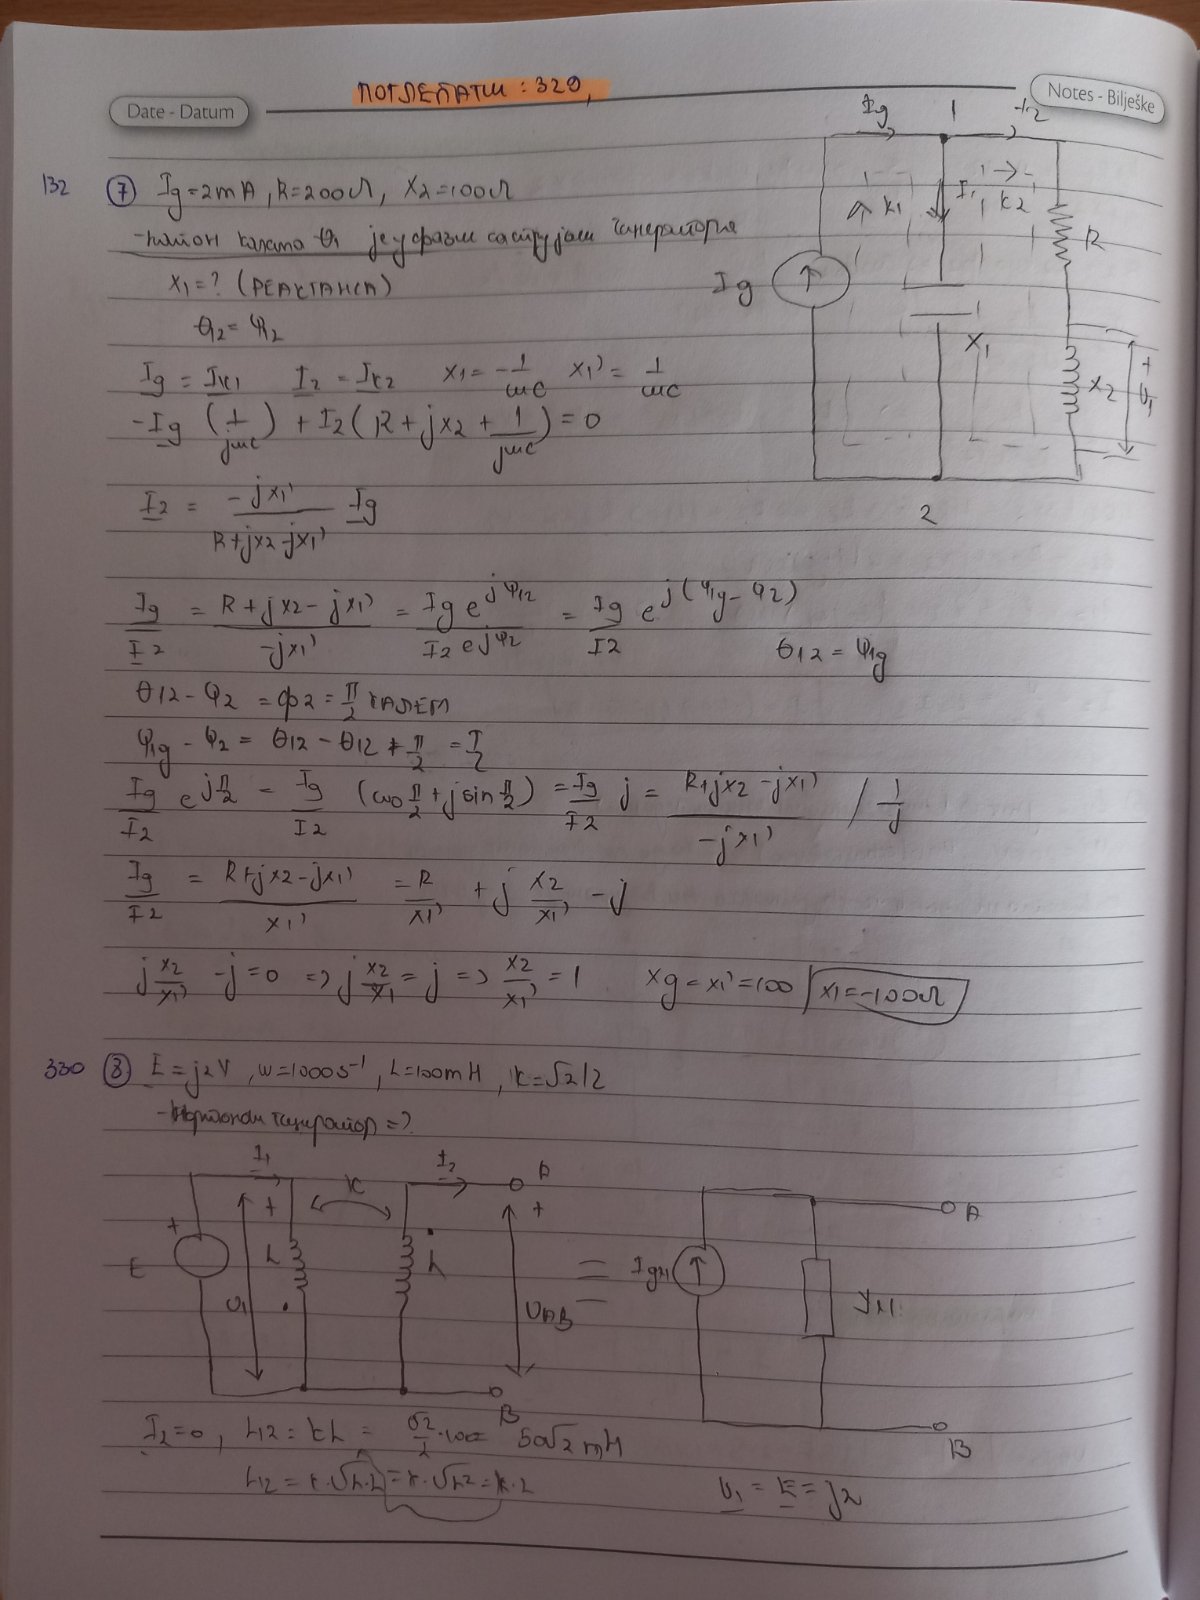 ПОГЛЕДАТИ : 329,
Date - Datum
Notes - Bilješke
132 (7) Ig = 2mA, R = 200Ω, X2 = 100Ω
- напон калема U1 је у фази са струјом генератора
X1 = ? (РЕАКТАНСА)
θ2 = φ2
Ig = Ik1 I2 = Ik2 X1 = -1/ωC X1' = 1/ωC
-Ig (1/jωC) + I2 (R + jX2 + 1/jωC) = 0
I2 = -jX1' / (R + jX2 - jX1') Ig
Ig/I2 = (R + jX2 - jX1') / (-jX1') = Ig e^jφ12 / I2 e^jφ2 = Ig/I2 e^j(φ1g - φ2)
θ12 = φ1g
θ12 - φ2 = ф2 = π/2 КАЛЕМ
φ1g - φ2 = θ12 - θ12 + π/2 = π/2
Ig/I2 e^jπ/2 = Ig/I2 (cos π/2 + j sin π/2) = Ig/I2 j = (R + jX2 - jX1') / (-jX1') / 1/j
Ig/I2 = (R + jX2 - jX1') / X1' = R/X1' + j X2/X1' - j
j X2/X1' - j = 0 => j X2/X1 = j => X2/X1' = 1 Xg = X1' = 100 | X1 = -100Ω
Ig 1 I2
K1 I1 K2 R
Ig
X1 X2 + U1
2
330 (8) E = j2V, ω = 1000 s^-1, L = 100mH, k = √2/2
- Нортонов генератор = ?
I1 k I2 A
+ + L L +
E U1 UAB = IgN YN A
B B
I2 = 0, L12 = kL = √2/2 · 100 = 50√2 mH
L12 = k · √L·L = k · √L² = k · L
U1 = E = j2